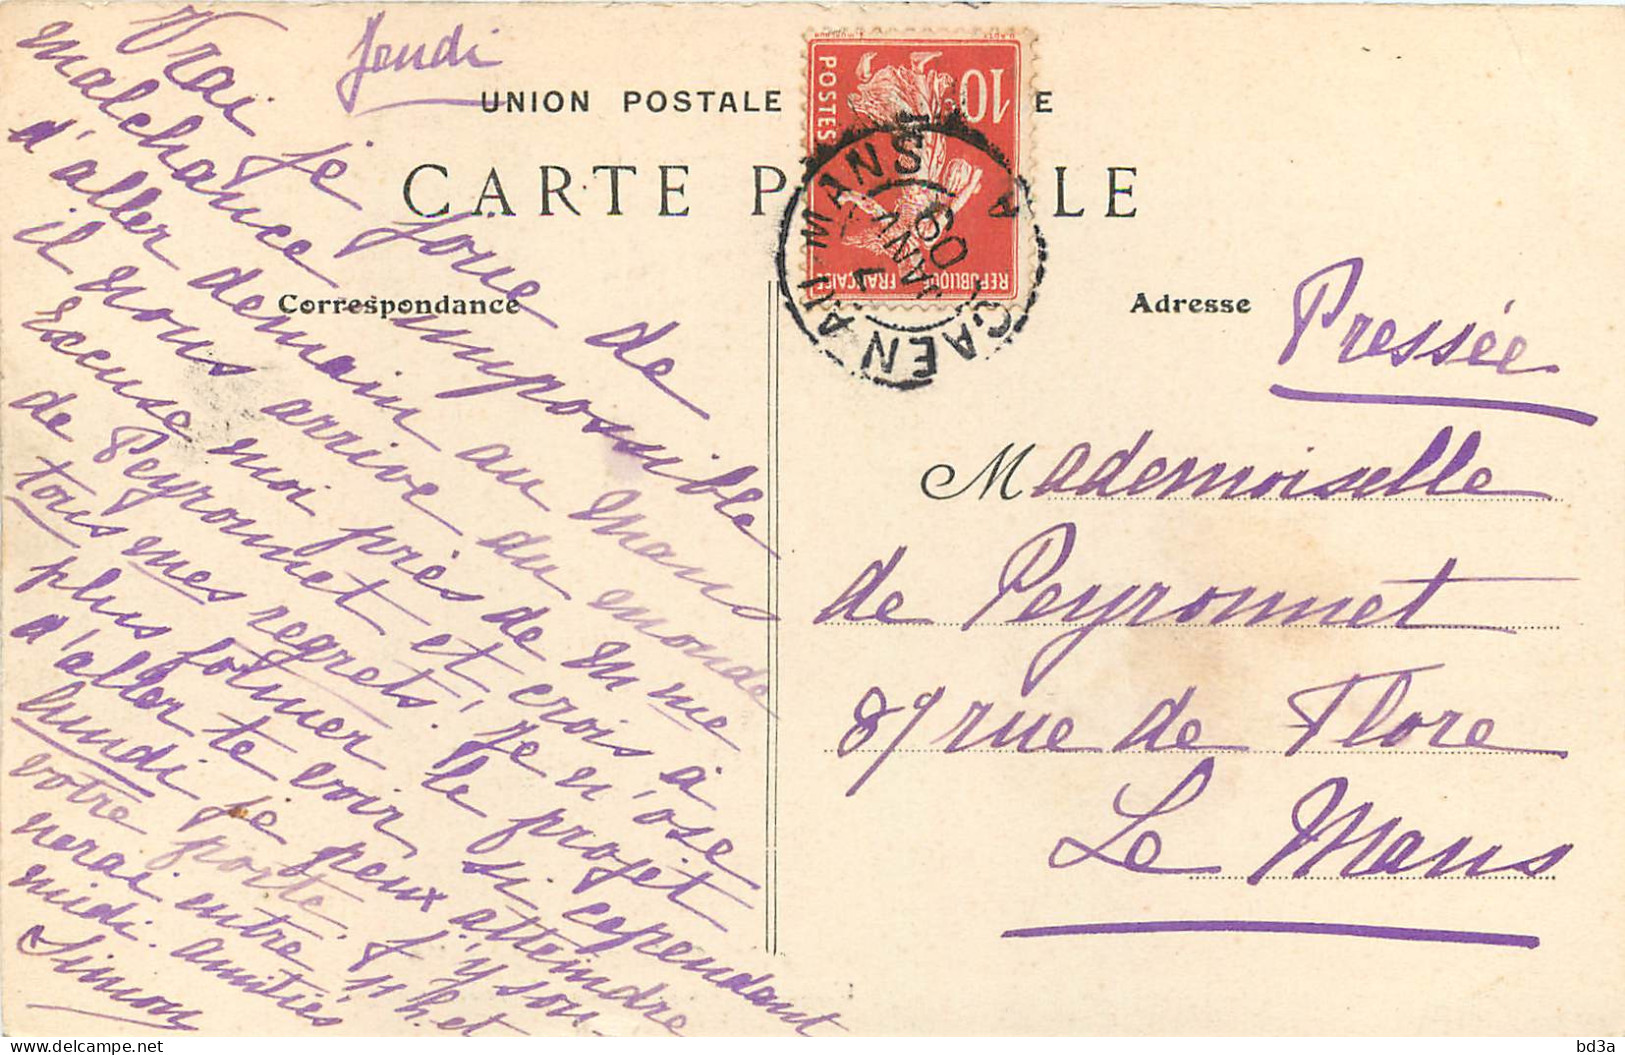 Jeudi
UNION POSTALE
E
CARTE P LE
Correspondance
Vrai je joue de
malchance impossible
d'aller demain au Mans
il nous arrive du monde
Excuse moi près de Mme
de Peyronnet et crois à
tous mes regrets. Je n'ose
plus former le projet
d'aller te voir si cependant
lundi je peux atteindre
votre porte. J'y son-
nerai entre 11 h. et
midi. amitiés
Simon
10
POSTES
REPUBLIQUE FRANÇAISE
CAEN AU MANS A
7
JANV
09
Adresse
Pressée
Mademoiselle
de Peyronnet
89 rue de Flore
Le Mans
bd3a